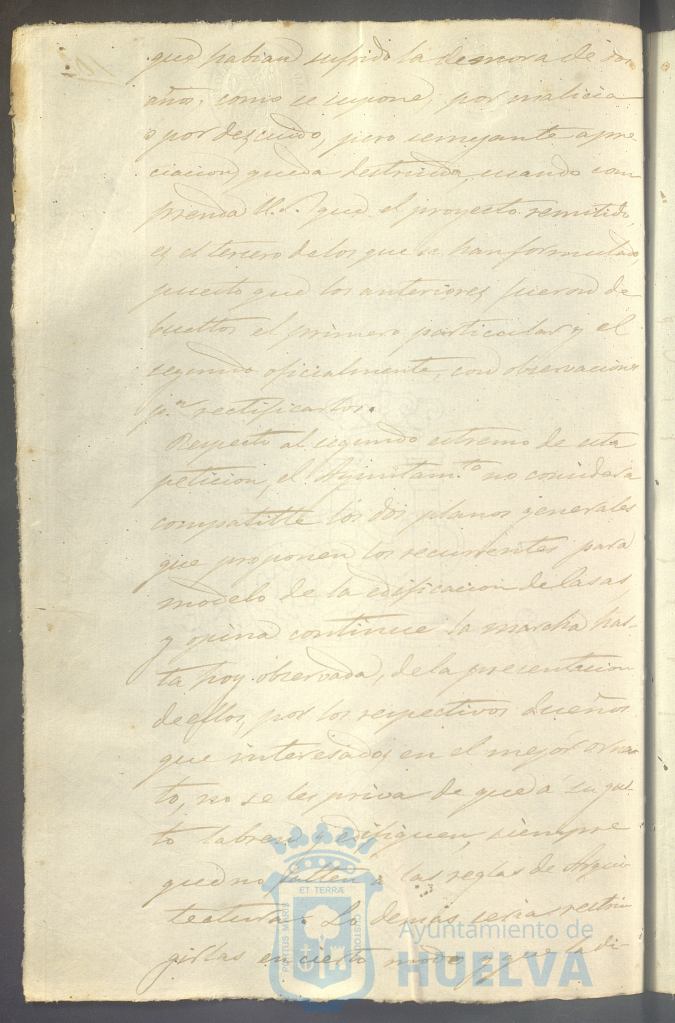 que habian sufrido la demora de dos
años, como se supone, por malicia
o por descuido, pero semejante apre-
ciacion queda destruida, cuando com
prenda U.S. que el proyecto remitido,
es el tercero de los que se han formulado,
puesto que los anteriores fueron de
bueltos el primero particular y el
segundo oficialmente, con observaciones
p.ª rectificarlos.
Respecto al segundo estremo de esta
peticion, el Ayuntam.to no considera
compatible los dos planos generales
que proponen los recurrentes para
modelo de la edificacion de casas
y opina continue la marcha has-
ta hoy observada, de la presentacion
de ellos, por los respectivos dueños
que interesados en el mejor orna
to, no se les priva de que á su gus-
to labren y edifiquen, siempre
que no falten á las reglas de Arqui
tectura. Lo demas seria restrin
girlas en cierto modo, y que la di
ET TERRÆ
PORTUS MARIS
CUSTODIA
Ayuntamiento de
HUELVA